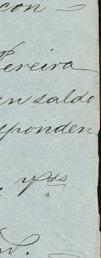 con -
Pereira
en saldo
esponden
yds